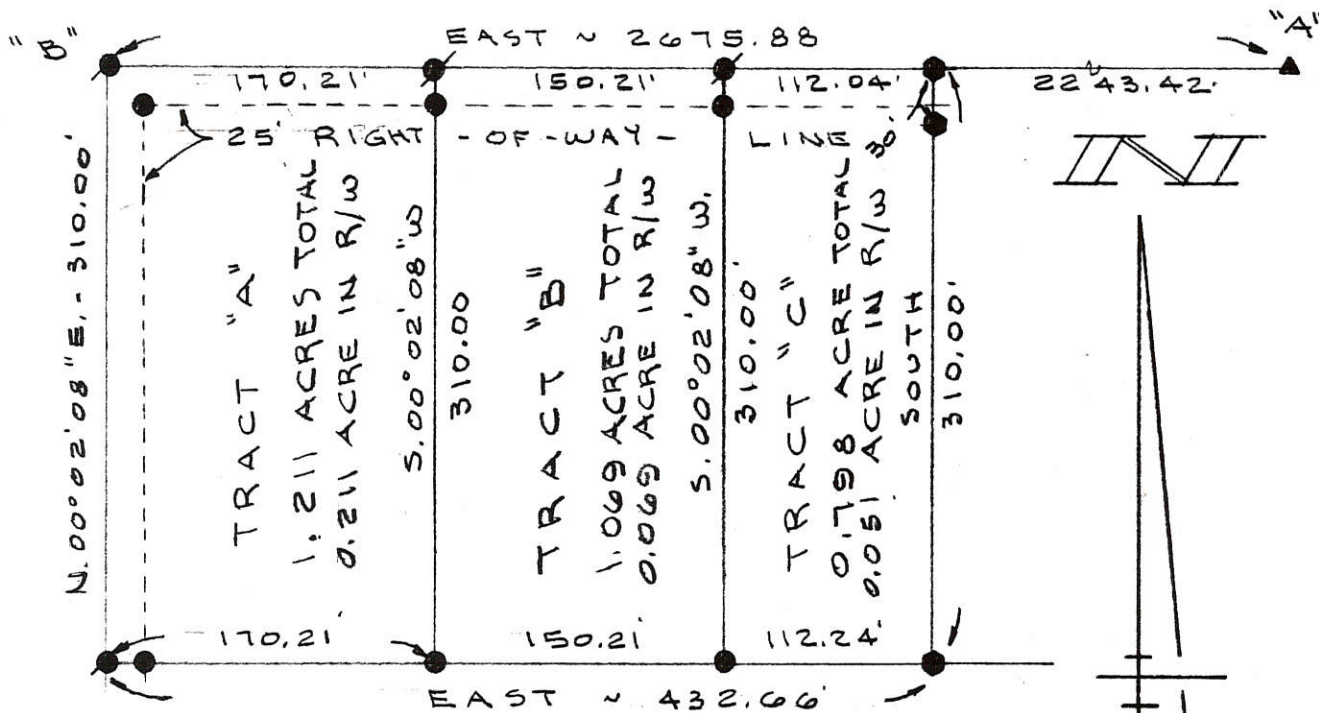 "B"
EAST ~ 2675.88
"A"
170.21'
150.21'
112.04'
2243.42'
25' RIGHT - OF - WAY - LINE
30'
N
N.00°02'08"E. - 310.00'
TRACT "A"
1.211 ACRES TOTAL
0.211 ACRE IN R/W
S.00°02'08"W
310.00
TRACT "B"
1.069 ACRES TOTAL
0.069 ACRE IN R/W
S.00°02'08"W.
310.00'
TRACT "C"
0.798 ACRE TOTAL
0.051 ACRE IN R/W
SOUTH
310.00'
170.21'
150.21'
112.24'
EAST ~ 432.66'